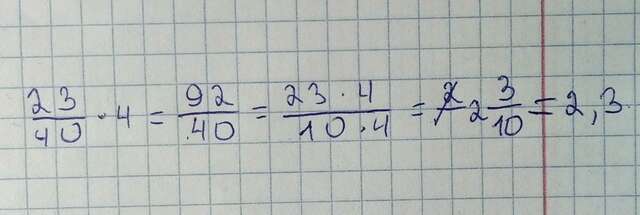 23/40 · 4 = 92/40 = 23 · 4/10 · 4 = 2 3/10 = 2,3